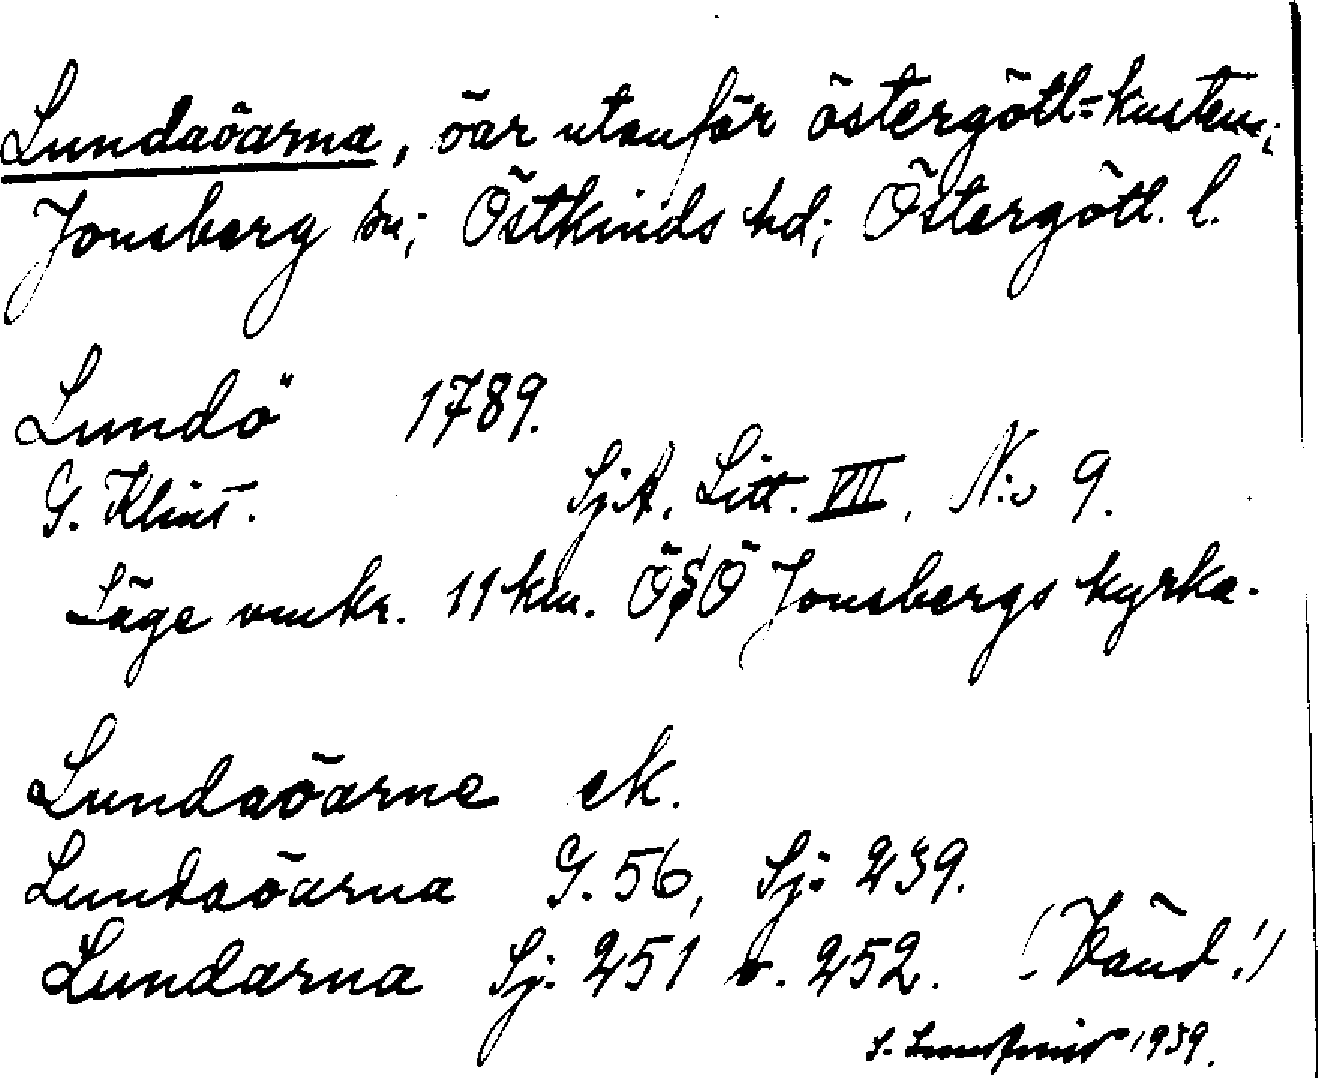 Lundaöarna, öar utanför östergötl-kusten;
Jonsberg sn; Östkinds hd; Östergötl. l.
Lundö 1789.
G. Klint. SjA. Litt. VII, N:o 9.
Läge omkr. 11 km. ÖSÖ Jonsbergs kyrka.
Lundaöarne eK.
Lundaöarna G. 56, Sj: 239.
Lundarna Sj. 251 o. 252. (Vänd!)
S. 1939.